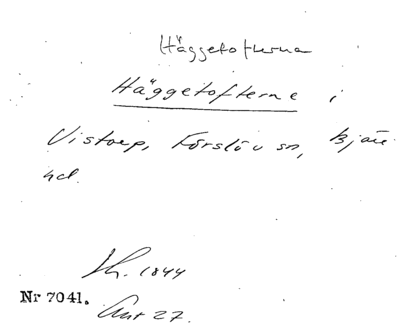 Häggetofterna
Häggetofterne i
Vistorp, Förslöv sn, Bjäre
hd.
Sk. 1844
Nr 7041.
Akt 27.